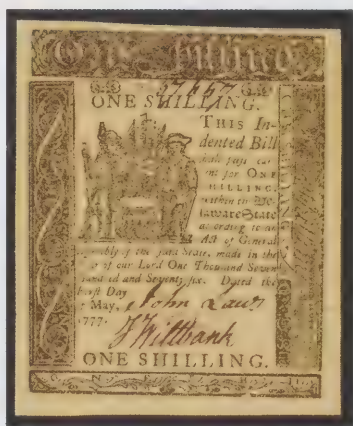 One Shilling.
57667
ONE SHILLING.
THIS In-
dented Bill
shall pass cur-
ent for ONE
SHILLING,
within the De-
laware State
according to an
Act of General
Assembly of the said State, made in the
of our Lord One Thousand Seven
and Seventy six. Dated the
First Day
May,
1777.
John Laws
J Wiltbank
ONE SHILLING.